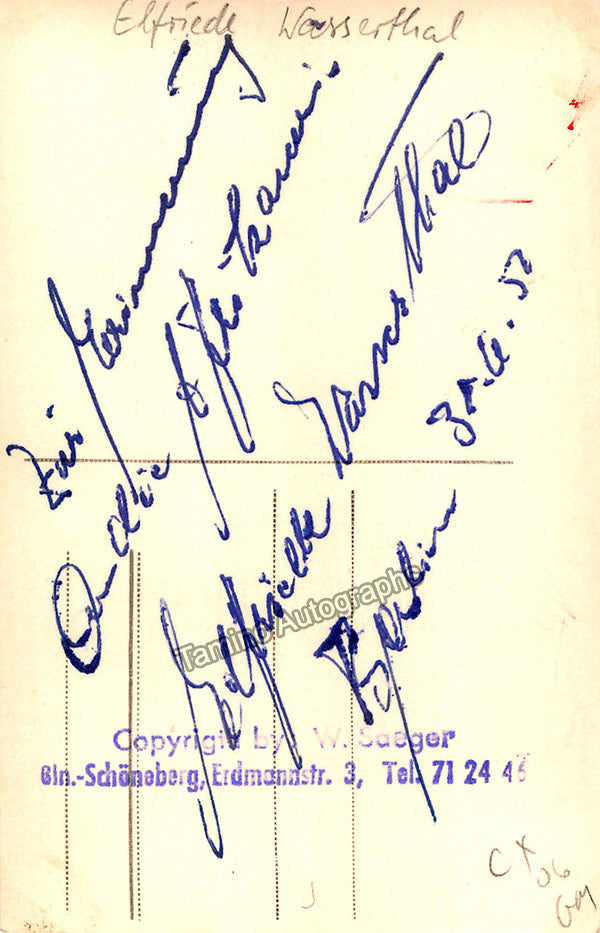 Elfriede Wasserthal
Zur Erinnerung
an die
Elfriede Wasserthal
Berlin
Tamino Autographs
Copyright by W. Saeger
Bln.-Schöneberg, Erdmannstr. 3, Tel. 71 24 45